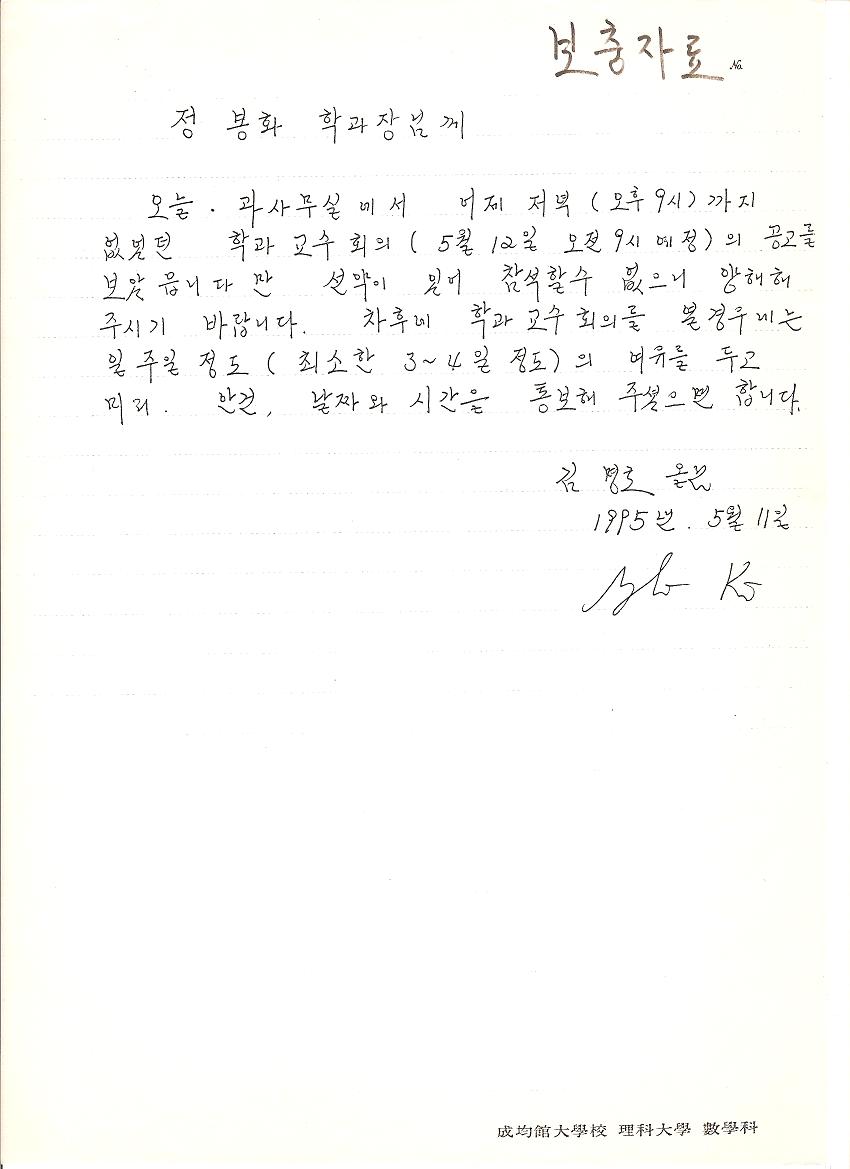 보충자료 No.
정 봉화 학과장님께
오늘. 과사무실에서 어제 저녁 (오후 9시) 까지
없었던 학과 교수 회의 ( 5월 12일 오전 9시 예정) 의 공고를
보았읍니다만 선약이 있어 참석할수 없으니 양해해
주시기 바랍니다. 차후에 학과 교수 회의를 볼경우에는
일주일 정도 ( 최소한 3~4일 정도) 의 여유를 두고
미리. 안건, 날짜와 시간을 통보해 주셨으면 합니다.
김 명호 올림
1995년. 5월 11일
成均館大學校 理科大學 數學科